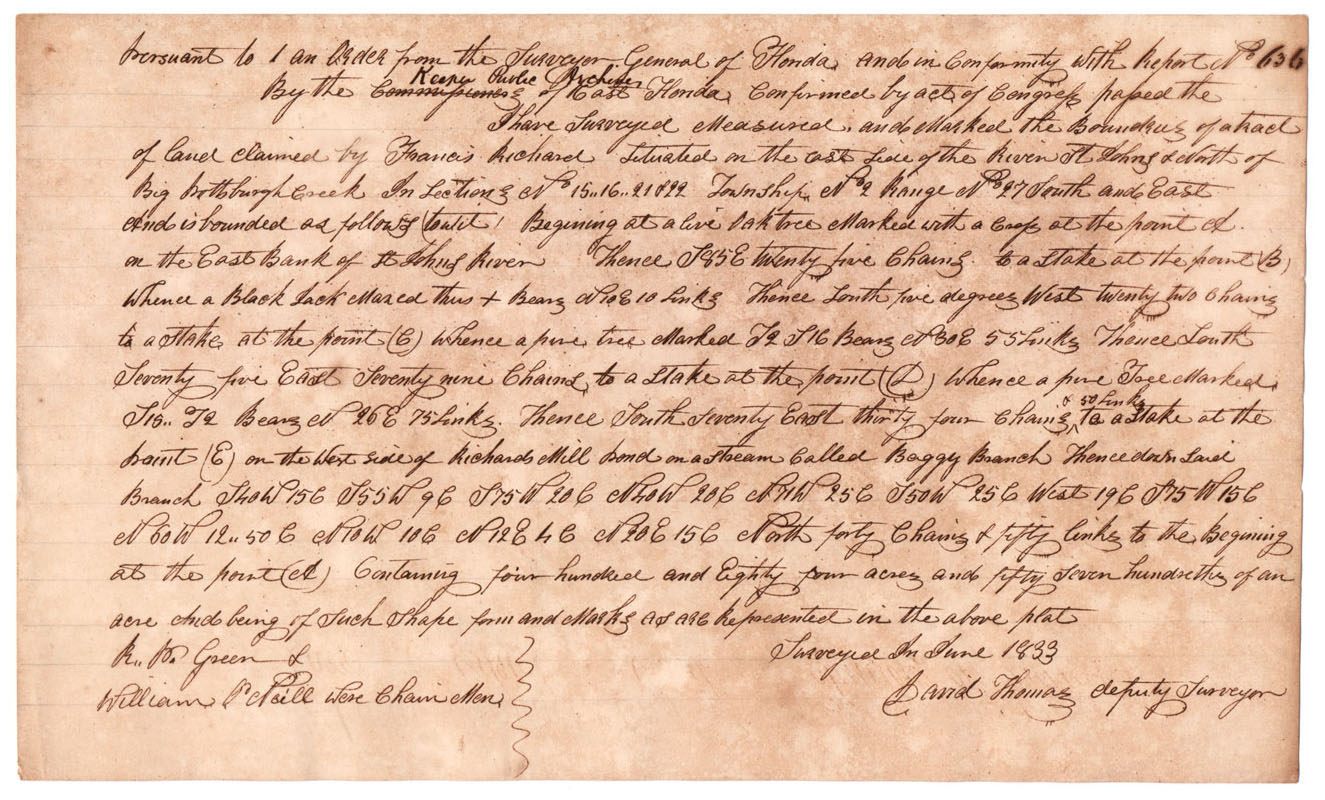 Persuant to / an Order from the Surveyor General of Florida and in Conformity with Report No 636
Keeper Public Archives
By the Commissioners of East Florida, Confirmed by act of Congress passed the
I have Surveyed Measured, and Marked the Boundrus of a tract
of land claimed by Francis Richard Situated on the east side of the River St Johns & North of
Big Pottsburgh Creek In Sections No 15..16..21&22 Township No 2 Range No 27 South and East
And is bounded as follows (towit) Begining at a live Oak tree Marked with a Cross at the point A.
on the East Bank of St Johns River Thence S85E twenty five Chains to a Stake at the point (B)
Whence a Black Jack Mared thus + Bears N70E 10 Links Thence South five degrees West twenty two Chains
to a Stake at the point (C) Whence a pine tree Marked T2 S16 Bears N30E 55 Links Thence South
Seventy five East Seventy nine Chains to a Stake at the point (D) Whence a pine Tree Marked
& 50 Links
S15.. T2 Bears N 26 E 75 Links. Thence South Seventy East thirty four Chains, to a Stake at the
point (E) on the West side of Richards Mill pond on a stream Called Baggy Branch Thence down Said
Branch S40W 15C S55W 9C S75W 20C N40W 20C N71W 25C S50W 25C West 19C S75W 15C
N60W 12..50C N10W 10C N12E 4C N20E 15C North forty Chains & fifty links to the Begining
at the point (A) Containing four hundred and Eighty four acres and fifty Seven hundreths of an
acre And being of Such Shape form and Marks as are Represented in the above plat
R.. P. Green & Surveyed In June 1833
William P Neill were Chain Men David Thomas deputy Surveyor